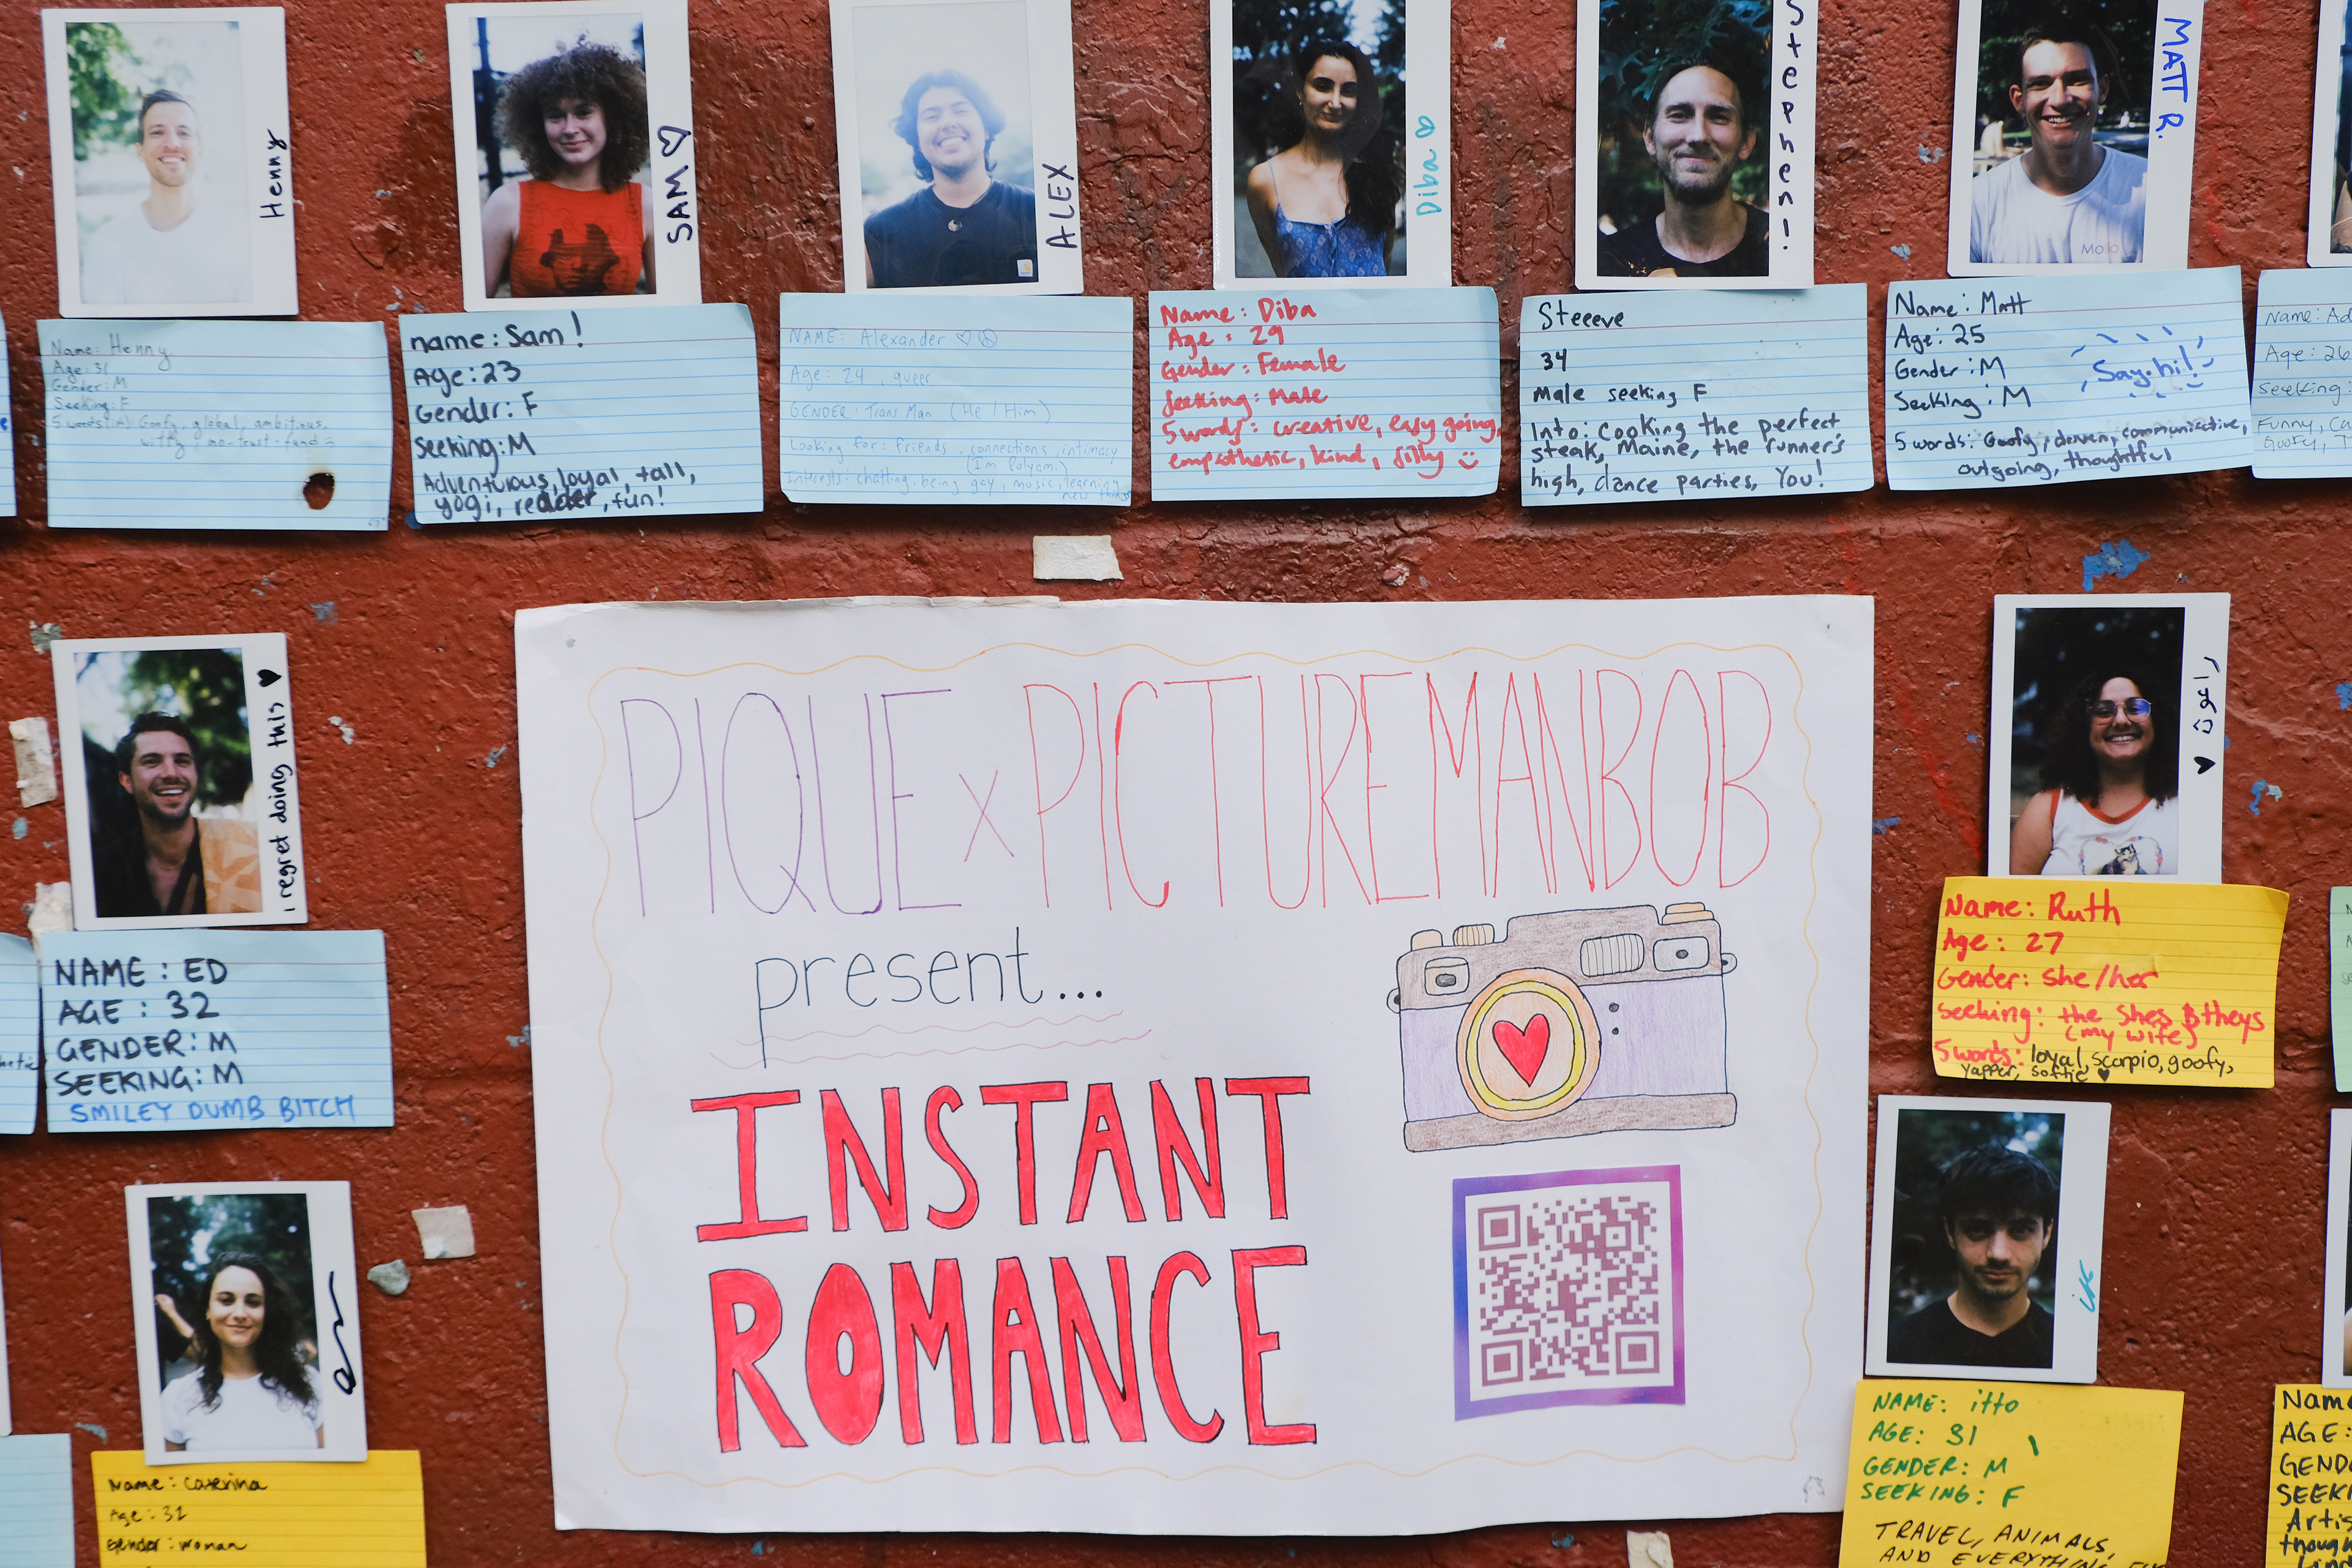 Henny
SAM
ALEX
Diba
Stephen!
MATT R.
MOLO
Name: Henny
Age: 31
Gender: M
Seeking: F
5 words(ish): Goofy, global, ambitious,
witty, no-trust-fund
name: Sam!
Age: 23
Gender: F
Seeking: M
Adventurous, loyal, tall,
yogi, reader, fun!
NAME: Alexander
Age: 24, queer
GENDER: Trans Man (He/Him)
Looking for: friends, connections, intimacy
(I'm Polyam.)
Interests: chatting, being gay, music, learning
new things
Name: Diba
Age: 29
Gender: Female
Seeking: Male
5 words: creative, easy going,
empathetic, kind, silly
Steeeve
34
Male seeking F
Into: Cooking the perfect
steak, Maine, the runner's
high, dance parties, You!
Name: Matt
Age: 25
Gender: M
Seeking: M
Say hi!
5 words: Goofy, driven, communicative,
outgoing, thoughtful
Name: Ad
Age: 26
Seeking:
Funny, Ca
Goofy, T
i regret doing this
NAME: ED
AGE: 32
GENDER: M
SEEKING: M
SMILEY DUMB BITCH
PIQUE x PICTUREMANBOB
present...
INSTANT
ROMANCE
Name: Ruth
Age: 27
Gender: She/her
Seeking: the shes & theys
(my wife)
5 words: loyal, scorpio, goofy,
yapper, softie
Name: Caterina
Age: 32
Gender: woman
NAME: itto
AGE: 31
GENDER: M
SEEKING: F
TRAVEL, ANIMALS,
AND EVERYTHING
Name
AGE:
GEND
SEEKI
Artis
thoug